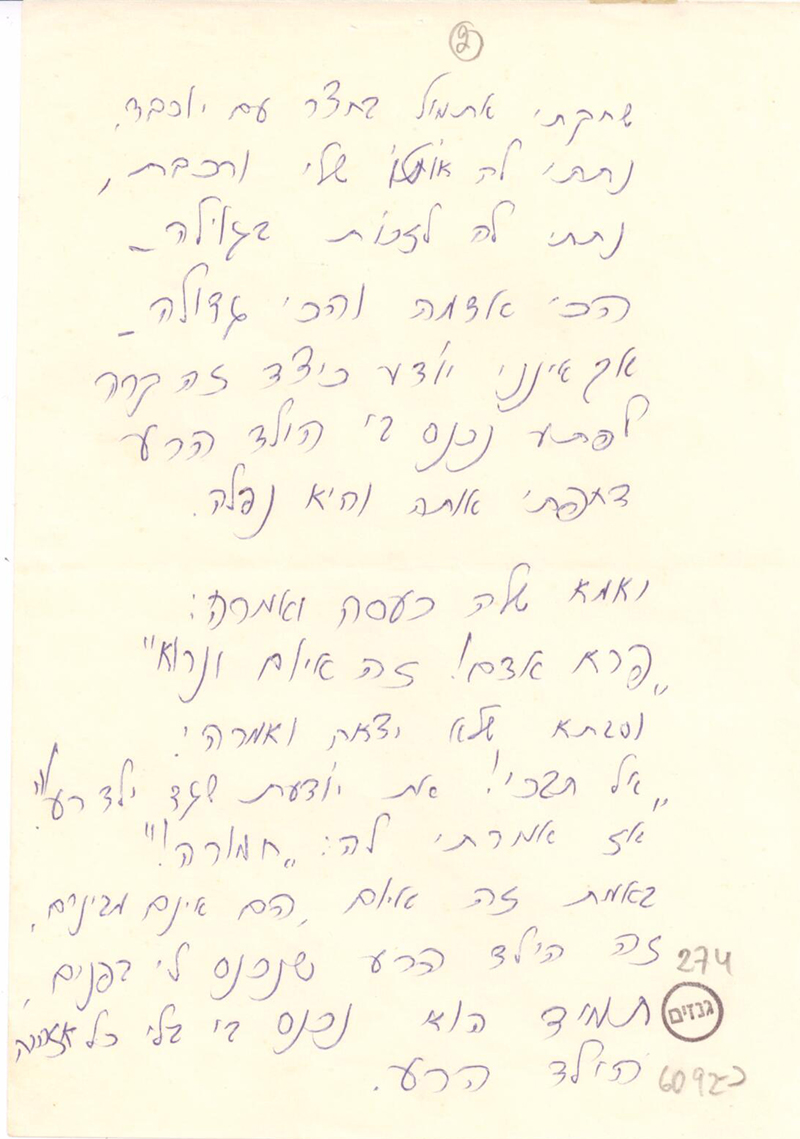 2
שחקתי אתמול בחצר עם יוכבד,
נתתי לה אוטו שלי ורכבת,
נתתי לה לזכות בגולה –
הכי אדמה והכי גדולה –
אך אינני יודע כיצד זה קרה
לפתע נכנס בי הילד הרע
דחפתי אותה והיא נפלה.
ואמא שלה כעסה ואמרה:
"פרא אדם! זה איום ונורא"
וסבתא שלא יצאה ואמרה:
"אל תבכי! את יודעת שגד ילד רע!"
אז אמרתי לה: "חמורה!"
באמת זה איום, הם אינם מבינים,
זה הילד הרע שנכנס לי בפנים,
274
תמיד הוא נכנס בי בלי כל אזהרה
גנזים
הילד הרע.
60926